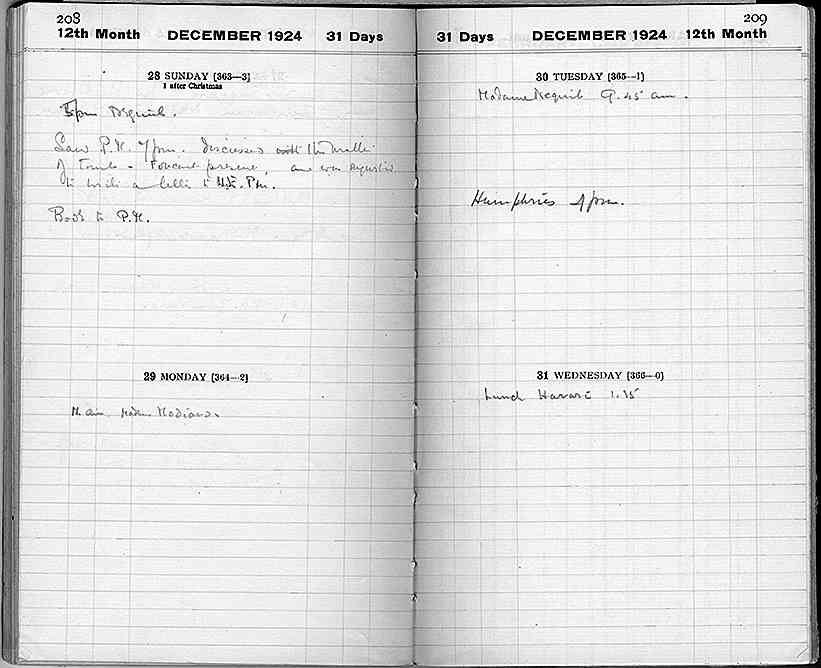 208
12th Month DECEMBER 1924 31 Days
28 SUNDAY [363—3]
1 after Christmas
5pm
Saw P.M. 7pm. Discussed with the matter
of Tomb - present, and was requested
to write a letter to H.E. P.M.
Back to P.M.
29 MONDAY [364—2]
11. am
209
31 Days DECEMBER 1924 12th Month
30 TUESDAY [365—1]
Madame 9.45 am.
Humphries 1 pm.
31 WEDNESDAY [366—0]
Lunch Harari 1.15